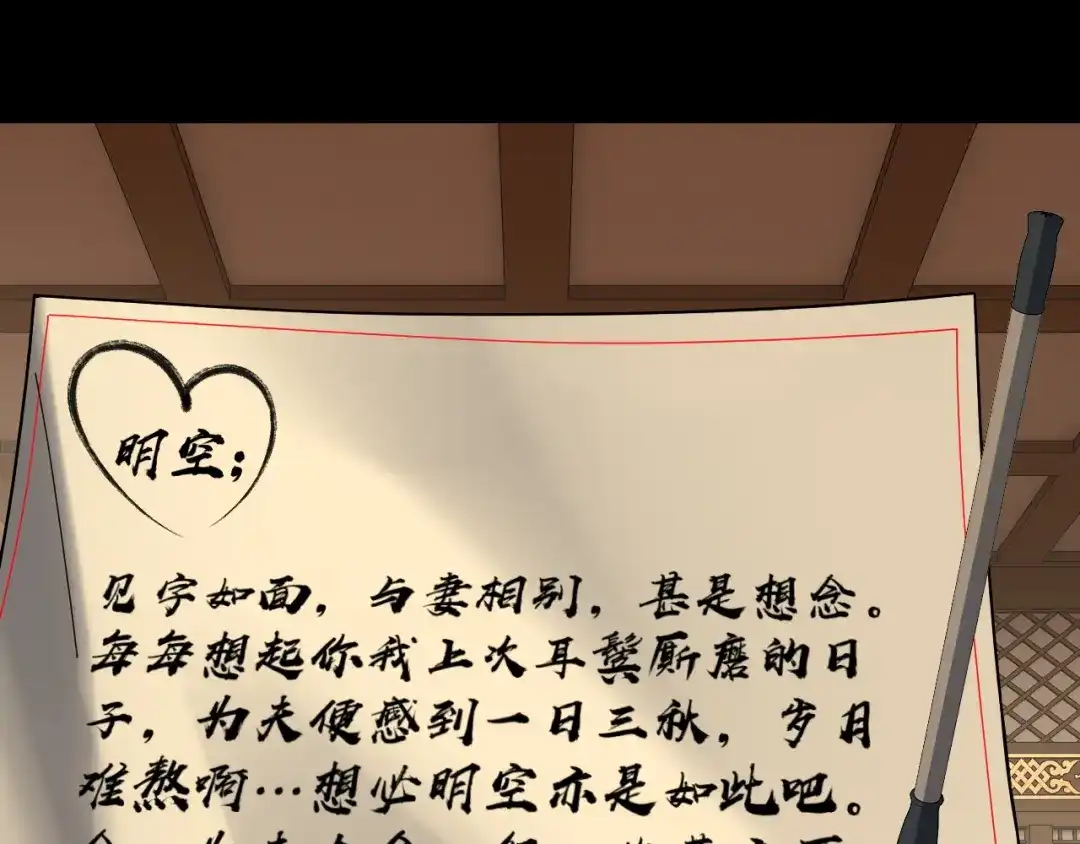 明空；
见字如面，与妻相别，甚是想念。
每每想起你我上次耳鬓厮磨的日
子，为夫便感到一日三秋，岁月
难熬啊…想必明空亦是如此吧。